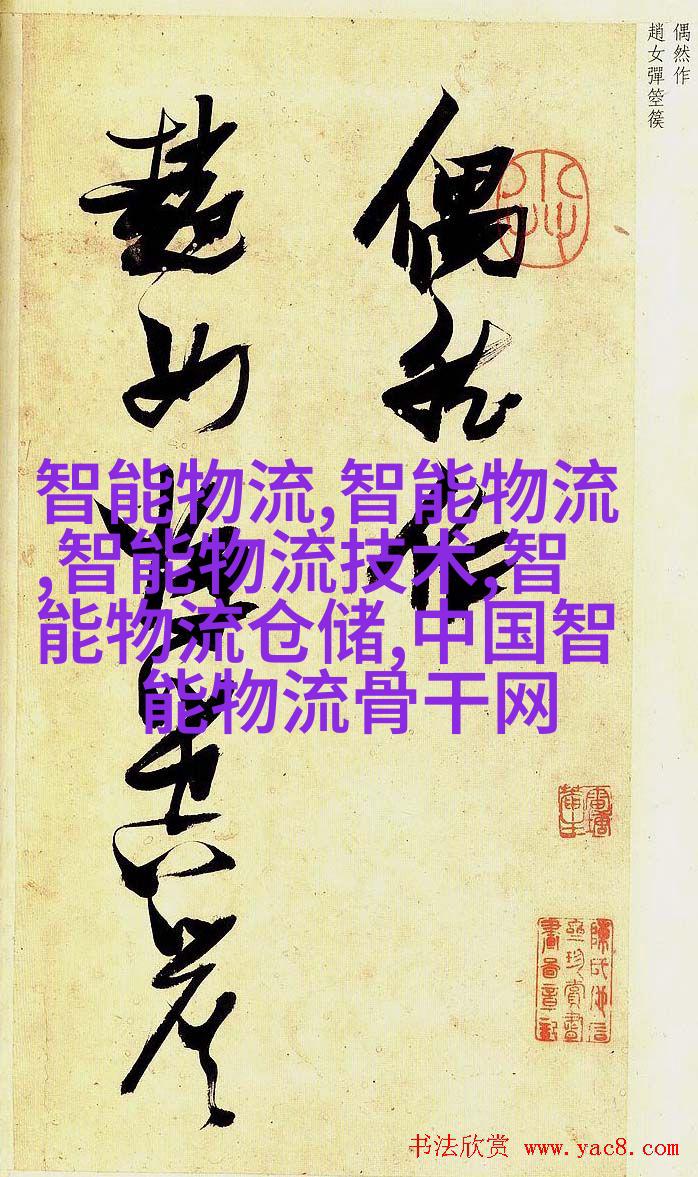 偶然作
趙女彈箜篌
偶然作
趙女彈箜篌
智能物流,智能物流
,智能物流技术,智
能物流仓储,中国智
能物流骨干网
书法欣赏 www.yac8.com